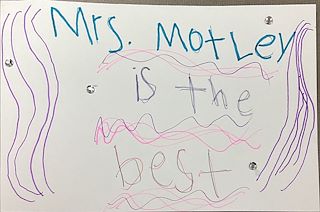 Mrs. Motley
is the
best